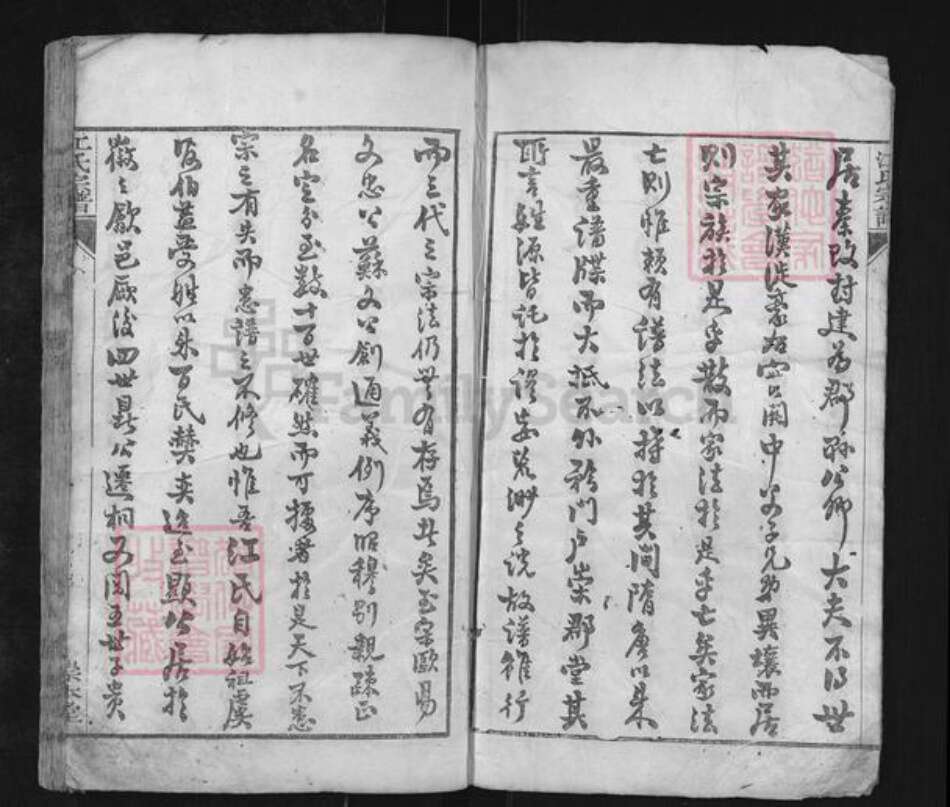 居秦改封建為郡縣公卿大夫不得世
其家漢徙豪右实關中父子兄弟異壤而居
則宗族於是乎散而家法於是乎亡矣家法
亡則惟賴有譜法以持於其間隋唐以来
最重譜牒而大抵不外矜門户崇郡堂其
所言難源皆託於謬妄荒渺之说故譜雖行
而三代之宗法仍無有存焉此矣至宗歐易
文忠公蘇文公創通義例序昭穆别親疏正
名定分至数十百世確然而可據者於是天下不患
宗之有失而患譜之不修也惟吾江氏自始祖虞
後伯益受姓以来百氏
迨至顯公居於
徽之歙邑厥後四世昌公遷桐又閱五世子贵
江氏宗譜
FamilySearch